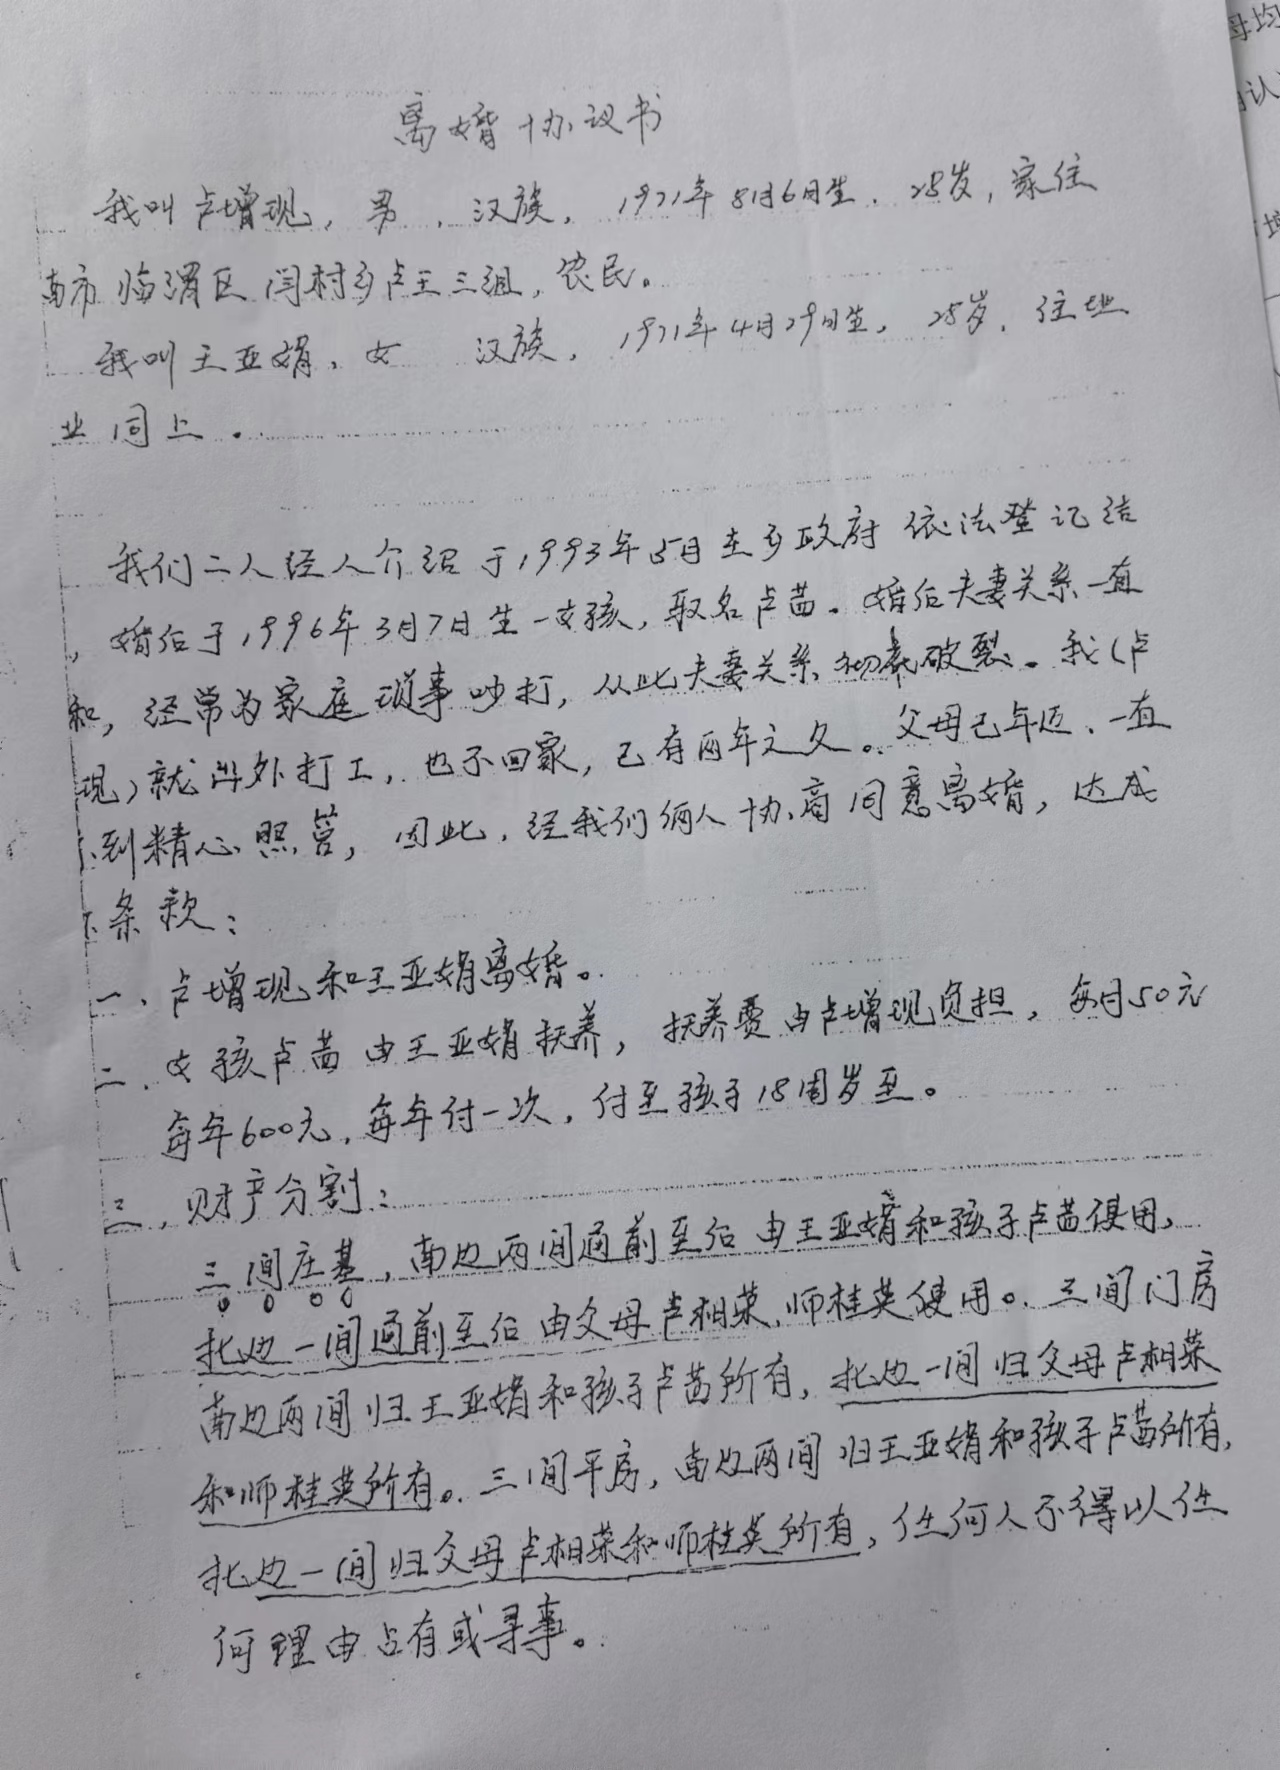 离婚协议书
我叫卢增现，男，汉族，1971年8月6日生，28岁，家住
南市临渭区闫村乡卢王三组，农民。
我叫王亚娟，女 汉族，1971年4月29日生，28岁，住址
业同上。
我们二人经人介绍于1993年5月在乡政府依法登记结
，婚后于1996年3月7日生一女孩，取名卢茜。婚后夫妻关系一直
和，经常为家庭琐事吵打，从此夫妻关系彻底破裂。我（卢
现）就出外打工，也不回家，已有两年之久。父母已年迈、一直
到精心照管，因此，经我们俩人协商同意离婚，达成
下条款：
一、卢增现和王亚娟离婚。
二、女孩卢茜由王亚娟抚养，抚养费由卢增现负担，每月50元
每年600元，每年付一次，付至孩子18周岁至。
三、财产分割：
三间庄基，南边两间通前至后由王亚娟和孩子卢茜使用，
北边一间通前至后由父母卢相荣、师桂英使用。三间门房
南边两间归王亚娟和孩子卢茜所有，北边一间归父母卢相荣
和师桂英所有。三间平房，南边两间归王亚娟和孩子卢茜所有，
北边一间归父母卢相荣和师桂英所有，任何人不得以任
何理由占有或寻事。
母均
认